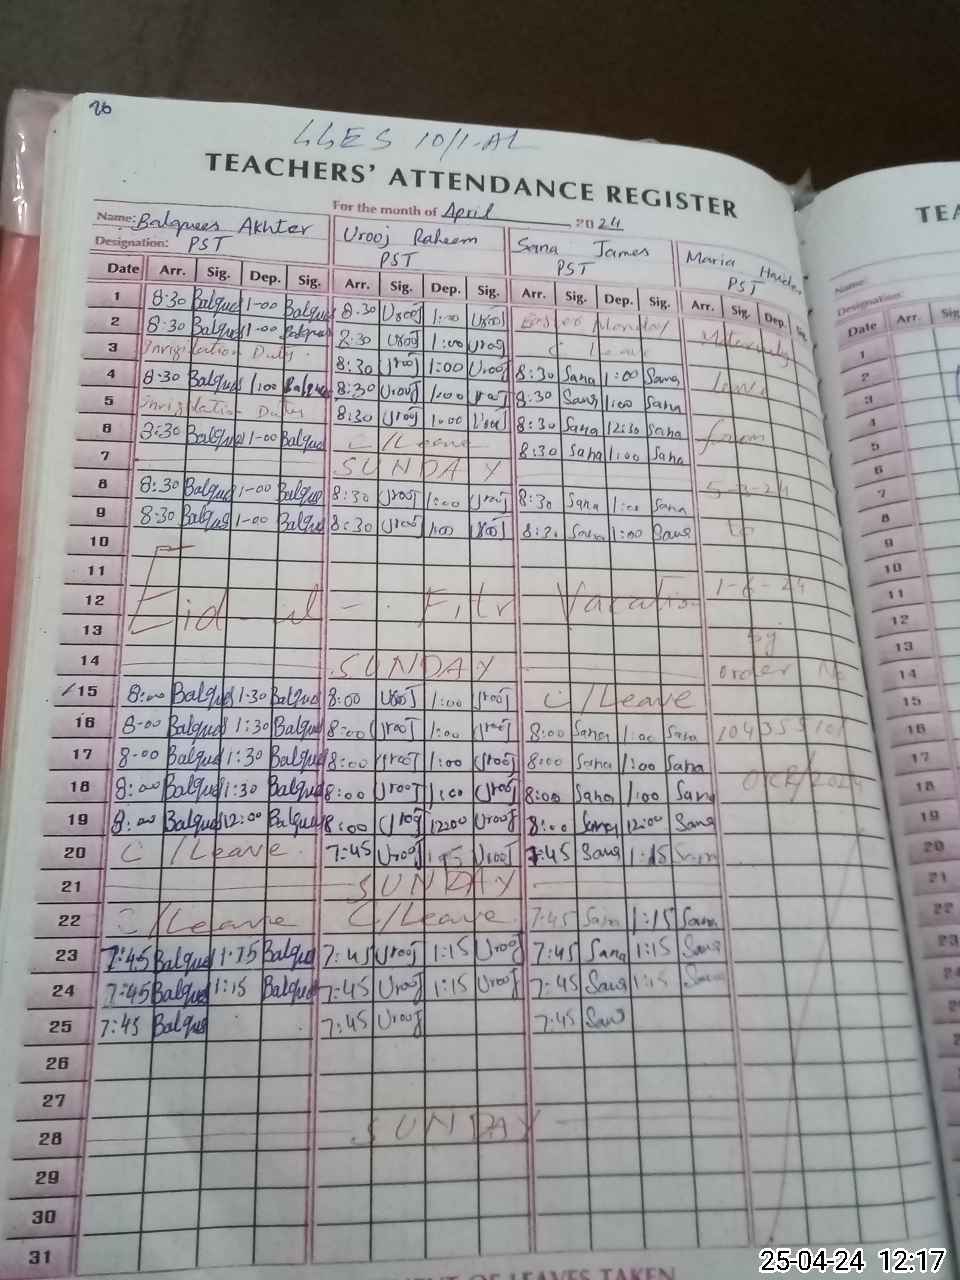 20
GGES 10/1-AL
TEACHERS' ATTENDANCE REGISTER
For the month of April 2024
Name: Balquees Akhter Urooj Raheem Sana James Maria
Designation: PST PST PST PST
Date Arr. Sig. Dep. Sig. Arr. Sig. Dep. Sig. Arr. Sig. Dep. Sig. Arr. Sig. Dep.
1 8-30 Balquees 1-00 Balquees 8.30 Urooj 1:00 Urooj Easter Monday Maternity
2 8-30 Balquees 1-00 Balquees 8.30 Urooj 1:00 Urooj C Leave
3 Invigilation Duty 8:30 Urooj 1:00 Urooj 8:30 Sana 1:00 Sana Leave
4 8-30 Balquees 1:00 Balquees 8:30 Urooj 1:00 Urooj 8:30 Sana 1:00 Sana
5 Invigilation Duty 8:30 Urooj 1:00 Urooj 8:30 Sana 12:30 Sana from
6 8:30 Balquees 1-00 Balquees C/Leave 8:30 Sana 1:00 Sana
7 SUNDAY
8 8:30 Balquees 1-00 Balquees 8:30 Urooj 1:00 Urooj 8:30 Sana 1:00 Sana
9 8-30 Balquees 1-00 Balquees 8:30 Urooj 1:00 Urooj 8:30 Sana 1:00 Sana to
10
11
12 Eid-ul-Fitr Vacation 1-6-24
13 by
14 SUNDAY order No
15 8:00 Balquees 1:30 Balquees 8:00 Urooj 1:00 Urooj C/Leave
16 8-00 Balquees 1:30 Balquees 8:00 Urooj 1:00 Urooj 8:00 Sana 1:00 Sana
17 8-00 Balquees 1:30 Balquees 8:00 Urooj 1:00 Urooj 8:00 Sana 1:00 Sana
18 8:00 Balquees 1:30 Balquees 8:00 Urooj 1:00 Urooj 8:00 Sana 1:00 Sana
19 8:00 Balquees 12:00 Balquees 8:00 Urooj 12:00 Urooj 8:00 Sana 12:00 Sana
20 C/Leave 7:45 Urooj Urooj 7:45 Sana 1:15 Sana
21 SUNDAY
22 C/Leave C/Leave 7:45 Sana 1:15 Sana
23 7:45 Balquees Balquees 7:45 Urooj 1:15 Urooj 7:45 Sana 1:15 Sana
24 7:45 Balquees 1:15 Balquees 7:45 Urooj 1:15 Urooj 7:45 Sana 1:15 Sana
25 7:45 Balquees 7:45 Urooj 7:45 Sana
26
27
28 SUNDAY
29
30
31
OF LEAVES TAKEN
Name:
Designation:
Date Arr.
1
2
3
4
5
6
7
8
9
10
11
12
13
14
15
16
17
18
19
20
21
22
23
25-04-24 12:17